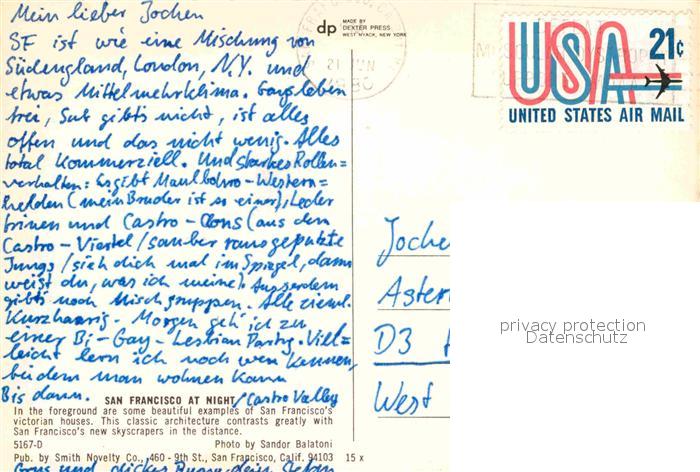 Mein lieber Jochen
SF ist wie eine Mischung von
Südengland, London, N.Y. und
etwas Mittelmehrklima. Gays leben
frei, Sub gibts nicht, ist alles
offen und das nicht wenig. Alles
total kommerziell. Und starkes Rollen=
verhalten: Es gibt Maulboro-Western=
helden (mein Bruder ist so einer), Leder
trinen und Castro-Clons (aus dem
Castro-Viertel / sauber rausgeputzte
Jungs / sieh dich mal im Spiegel, dann
weißt du, was ich meine). Ausserdem
gibts noch Mischgruppen. Alle zieml.
Kurzhaarig. Morgen geh ich zu
einer Bi-Gay-Lesbian Party. Viel=
leicht lern ich noch wen kennen,
bei dem man wohnen kann
Bis dann. / Castro Valley
SAN FRANCISCO AT NIGHT
In the foreground are some beautiful examples of San Francisco's
victorian houses. This classic architecture contrasts greatly with
San Francisco's new skyscrapers in the distance.
5167-D Photo by Sandor Balatoni
Pub. by Smith Novelty Co., 460 - 9th St., San Francisco, Calif. 94103 15 x
Gruss und dicker dein Stefan
dp MADE BY
DEXTER PRESS
WEST NYACK, NEW YORK
21 JUN
1980
USA 21¢
UNITED STATES AIR MAIL
Joche
Aster
D3
West
privacy protection
Datenschutz